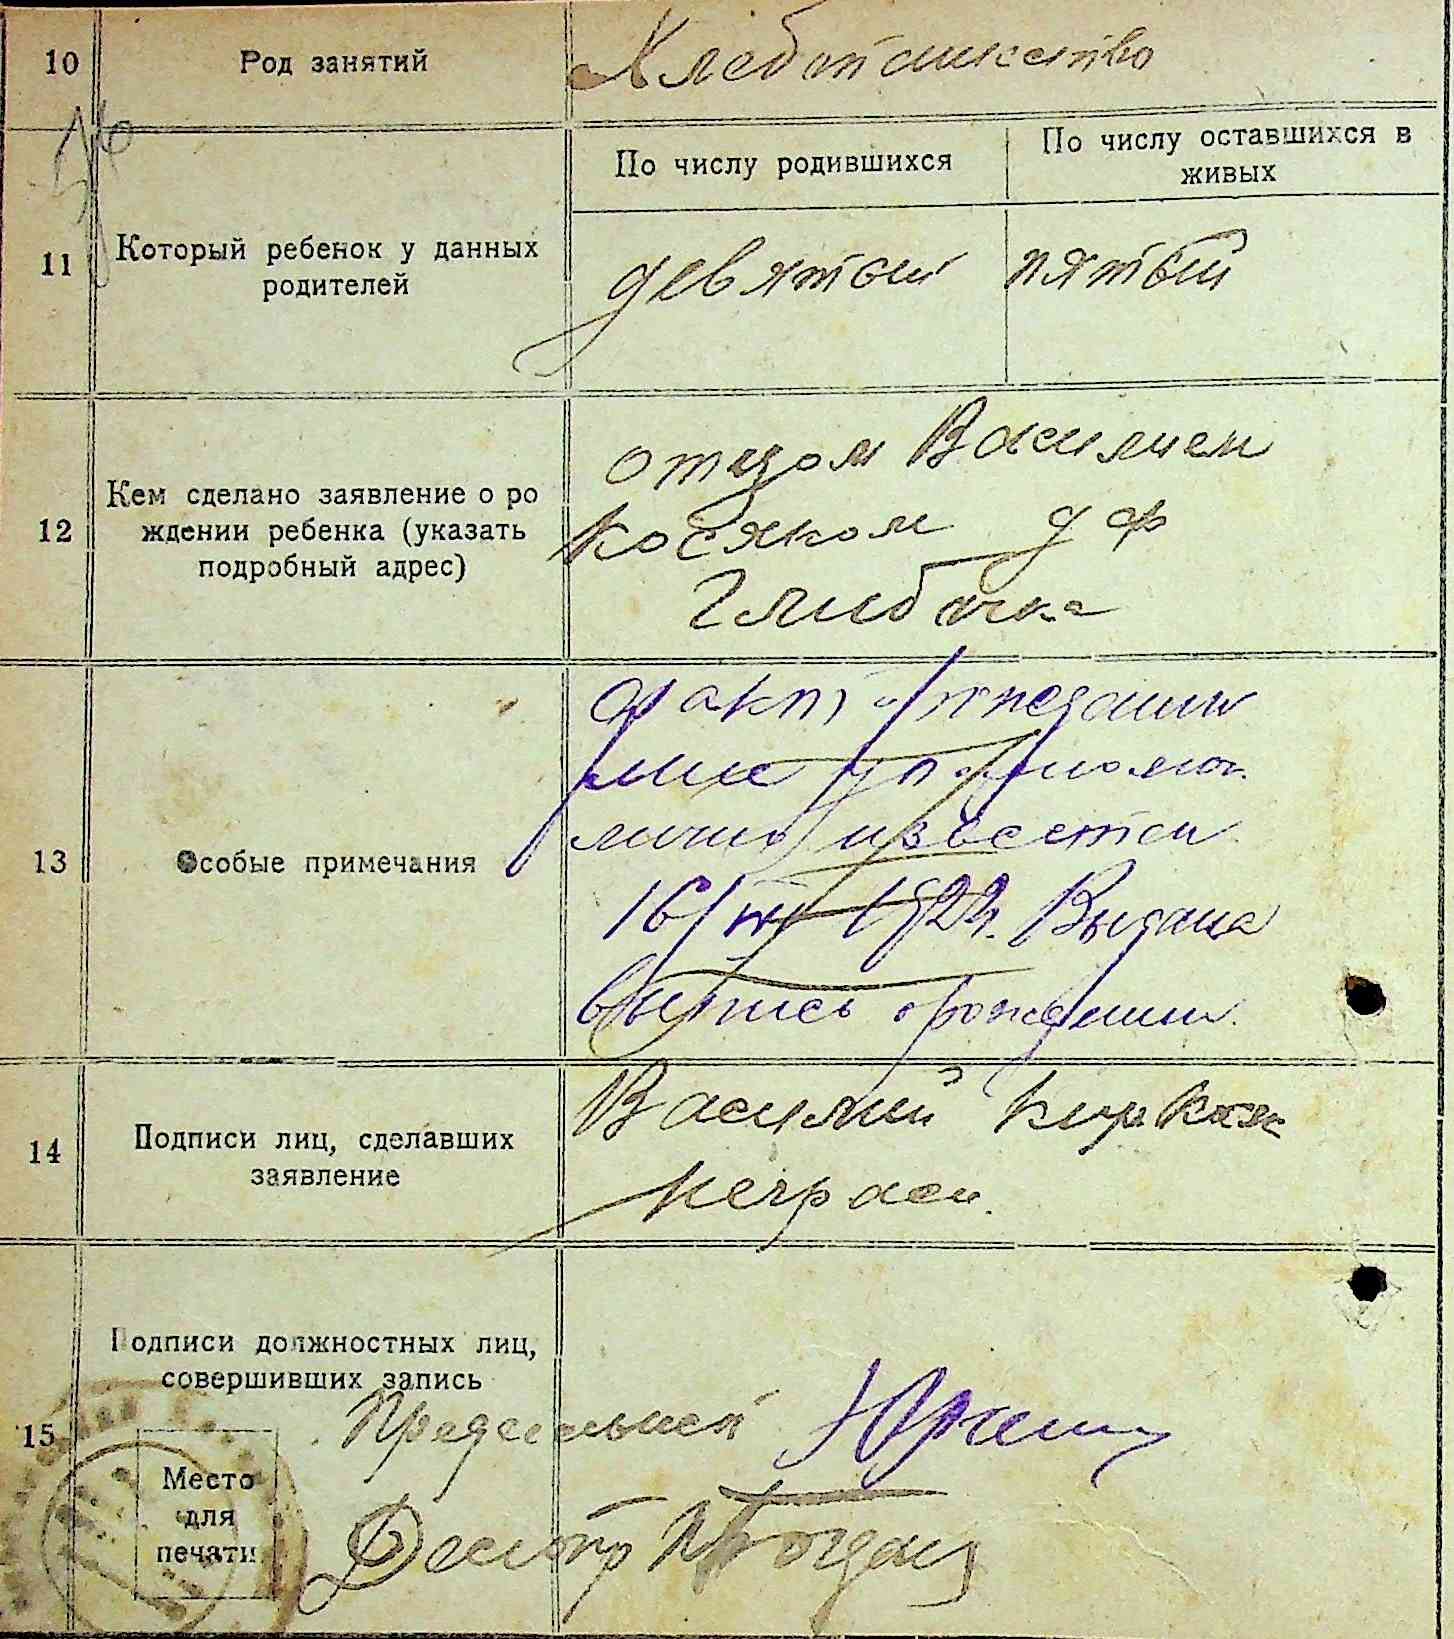 10 Род занятий Хлебопашество
По числу родившихся По числу оставшихся в
живых
11 Который ребенок у данных
родителей
девятый пятый
12 Кем сделано заявление о ро
ждении ребенка (указать
подробный адрес)
отцом Василием
Косяком д ф
Глибочка
13 Особые примечания
факт
мне
лично известен
16/ 192 Выдана
выпись о рождении.
14 Подписи лиц, сделавших
заявление
Василий
15 Подписи должностных лиц,
совершивших запись
Место
для
печати